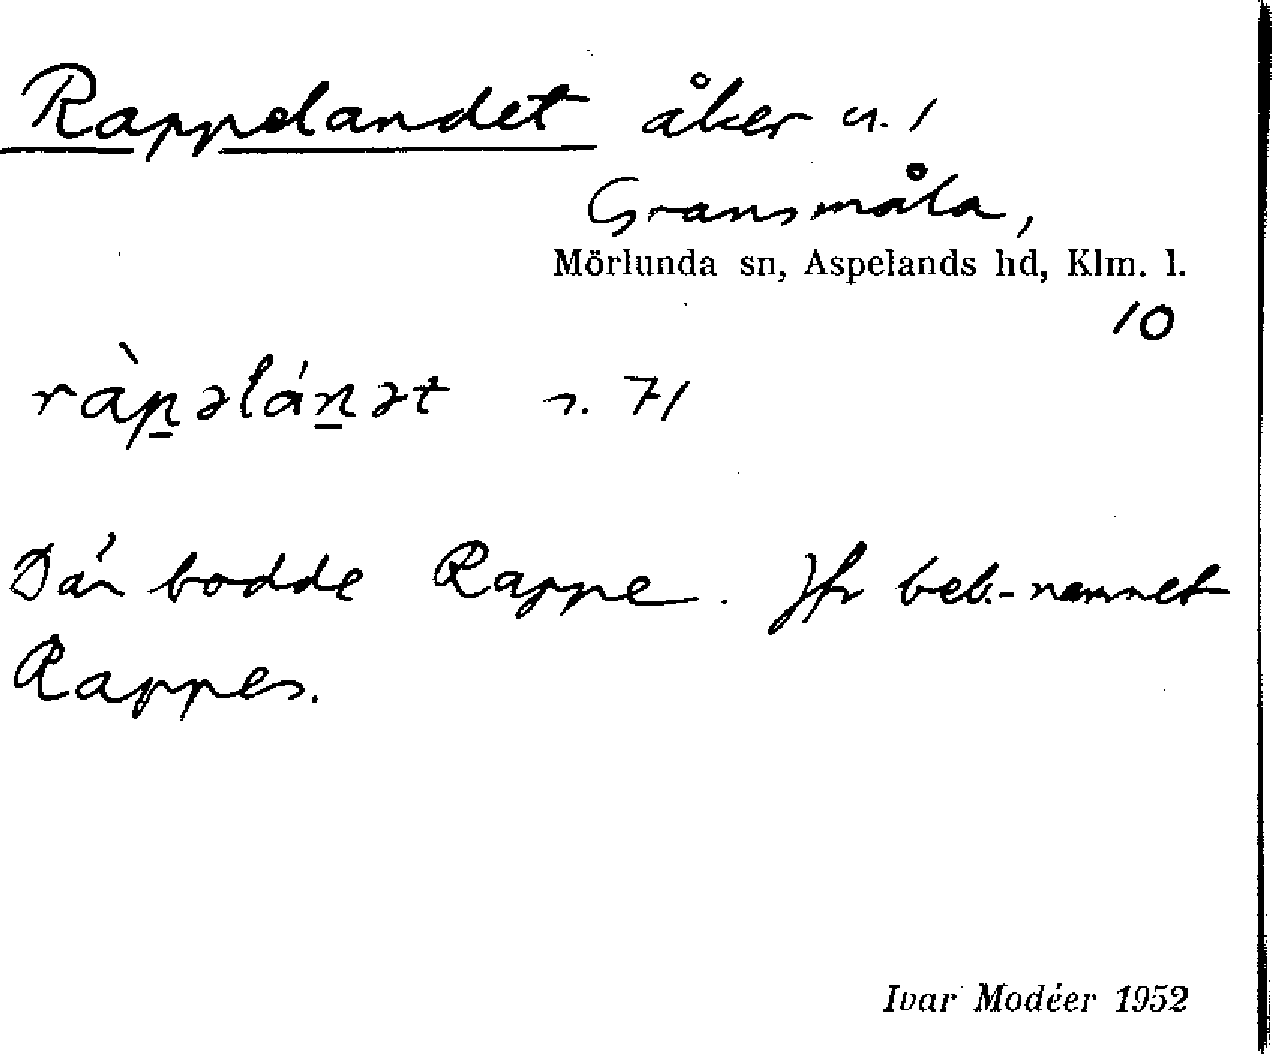 Rappelandet åker n. 1
Gransmåla,
Mörlunda sn, Aspelands hd, Klm. l.
10
ràp̲əlán̲ət n. 71
Där bodde Rappe. Jfr beb.-namnet
Rappes.
Ivar Modéer 1952